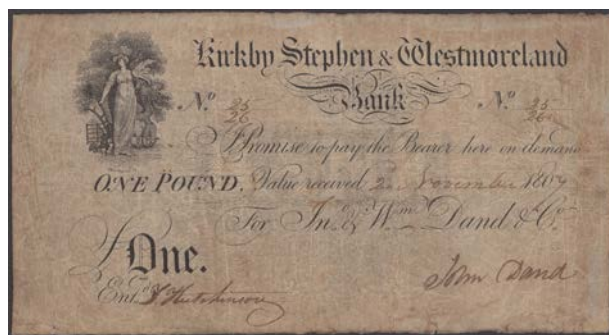 Kirkby Stephen & Westmoreland
Bank
No 25/26 No 25/26
I Promise to pay the Bearer here on demand
ONE POUND. Value received 2 November 1809
For Jno. & Wm. Dand & Co.
£ One.
Entd J Hutchinson John Dand